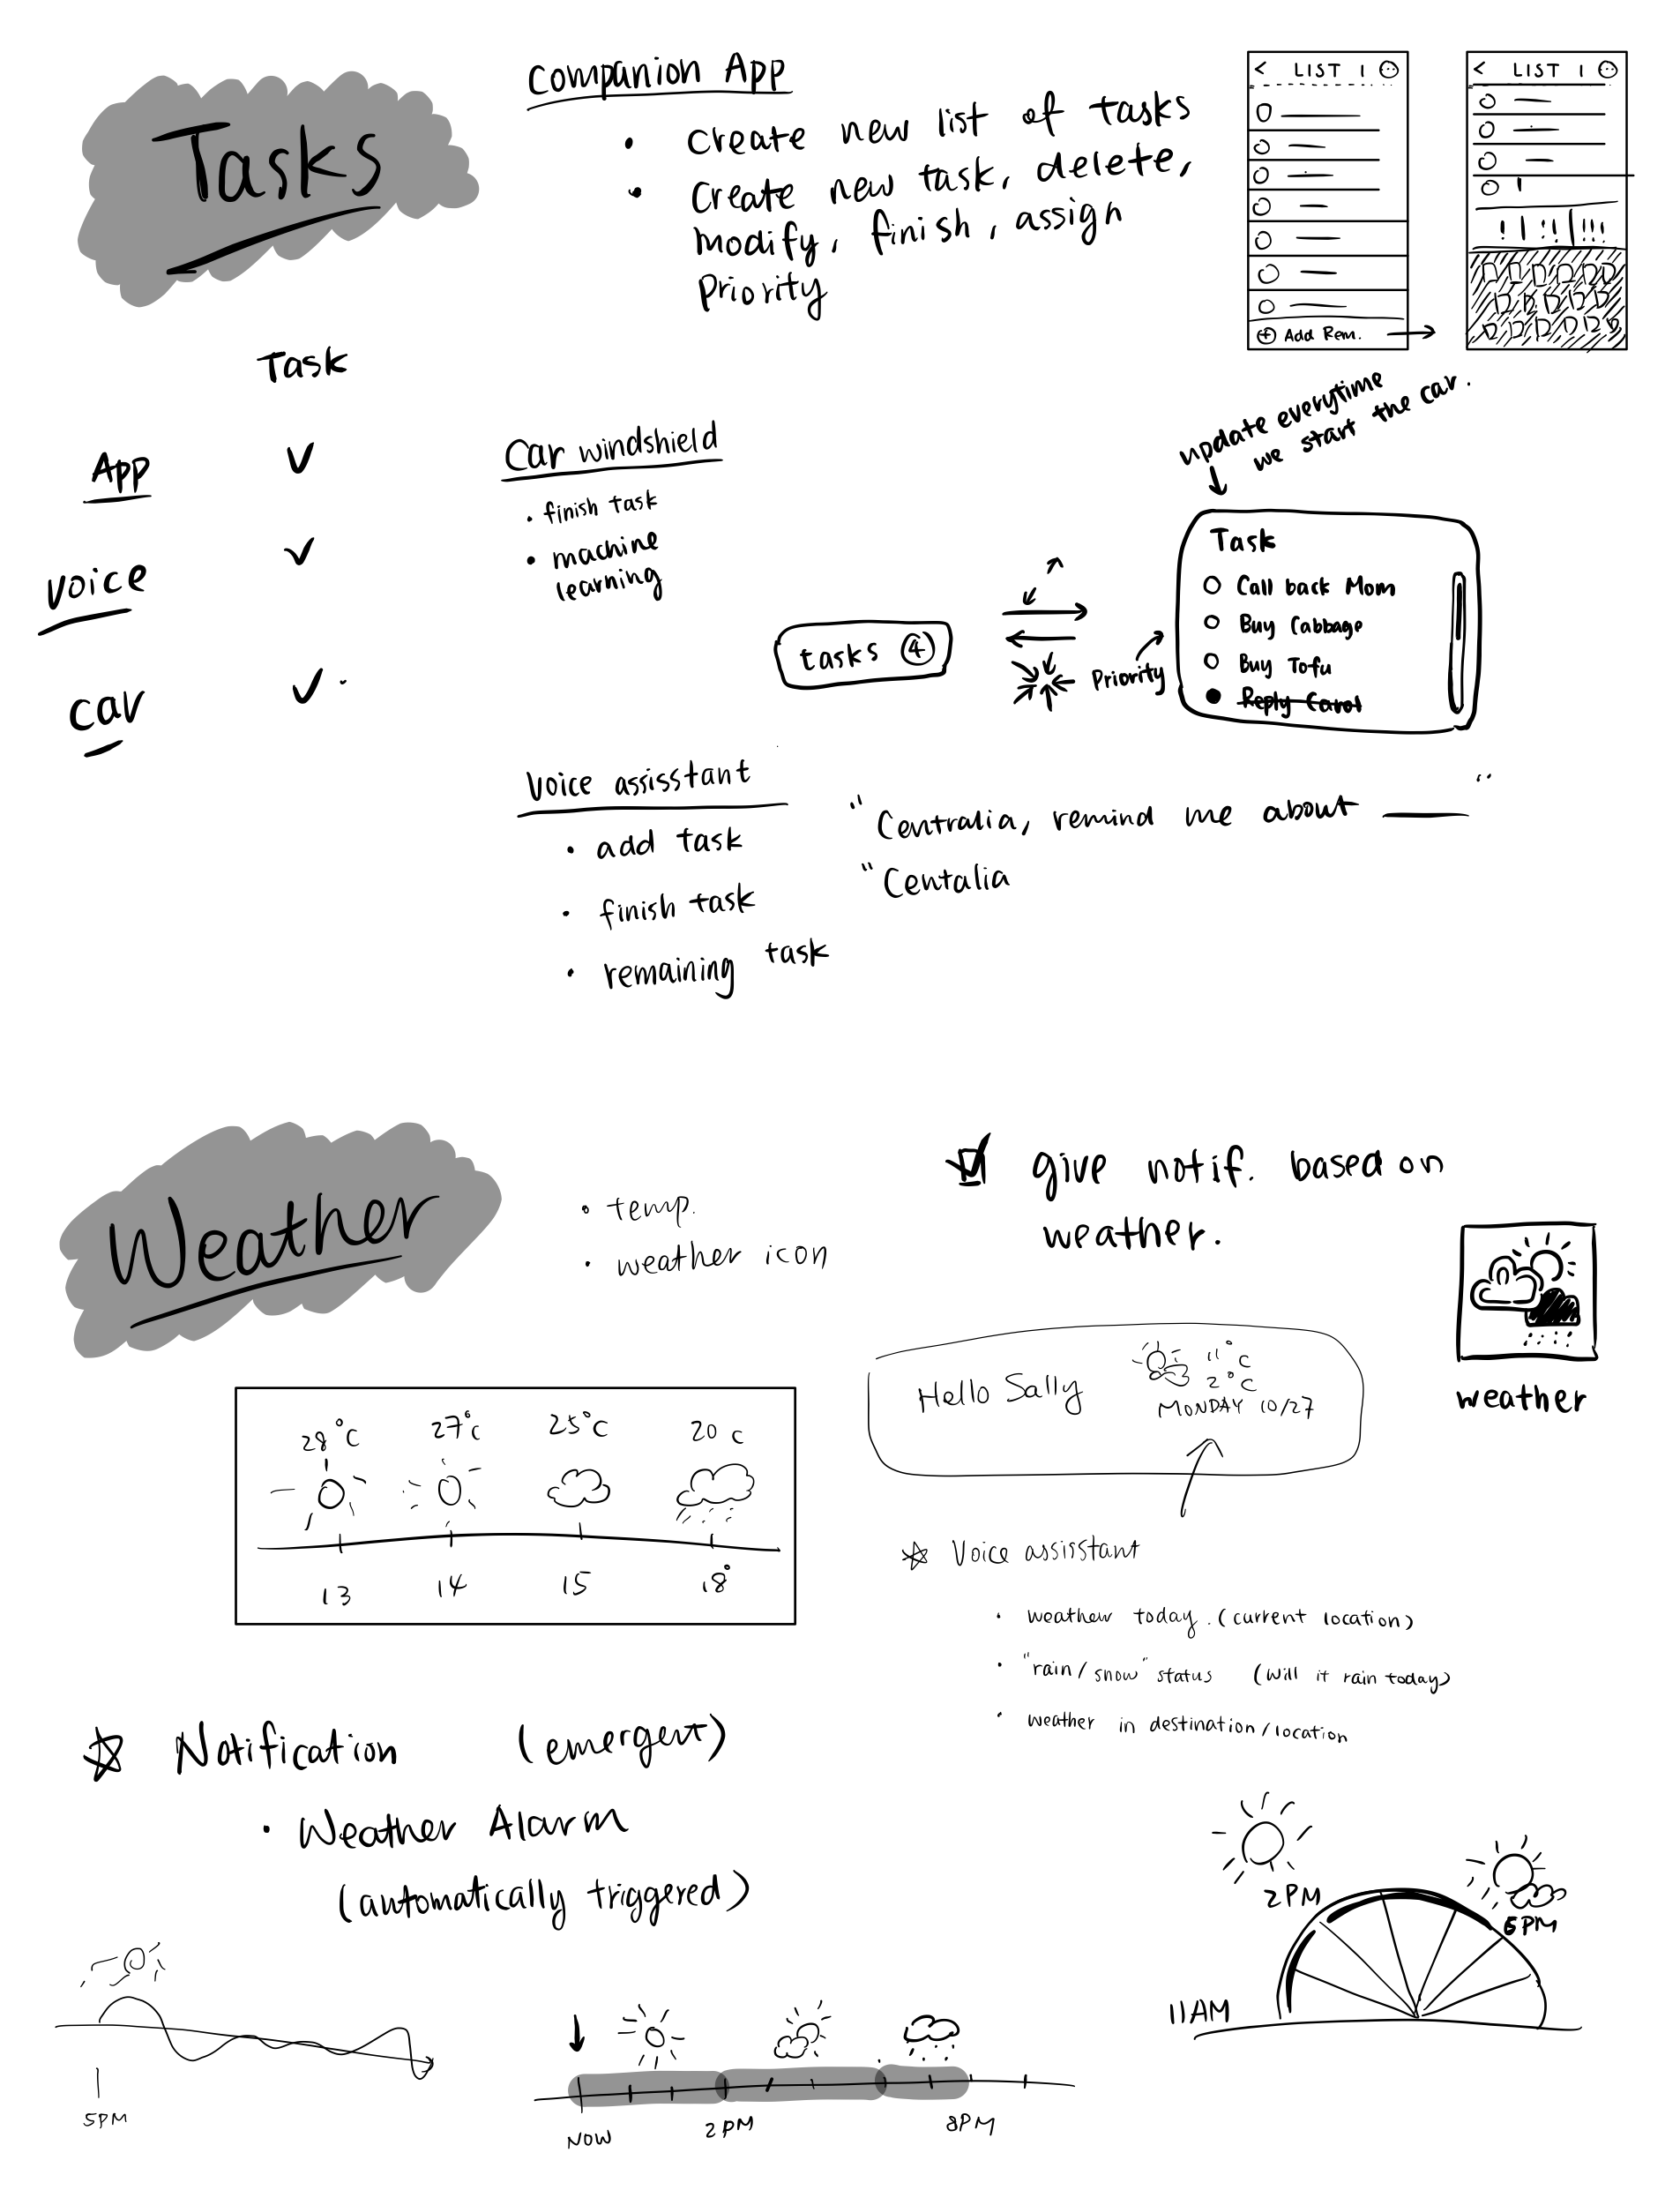 Tasks
Companion App
• Create new list of tasks
• Create new task, delete,
modify, finish, assign
Priority
< LIST 1
+ Add Rem.
< LIST 1
! | !! | !!!
Task
App ✓
Voice ✓
Car ✓
Car windshield
• finish task
• machine
learning
update everytime
we start the car.
tasks 4
Priority
Task
Call back Mom
Buy Cabbage
Buy Tofu
Reply Carol
Voice assisstant
• add task
• finish task
• remaining task
"Centralia, remind me about ___"
"Centalia
Weather
• temp.
• weather icon
give notif. based on
weather.
weather
Hello Sally
11°C
2°C
MONDAY 10/27
28°C 27°C 25°C 20 C
13 14 15 18°
☆ Voice assisstant
• weather today. (current location)
• "rain/snow" status (will it rain today)
• weather in destination/location
☆ Notification (emergent)
• Weather Alarm
(automatically triggered)
5PM
NOW 2PM 8PM
11AM 2PM 6PM